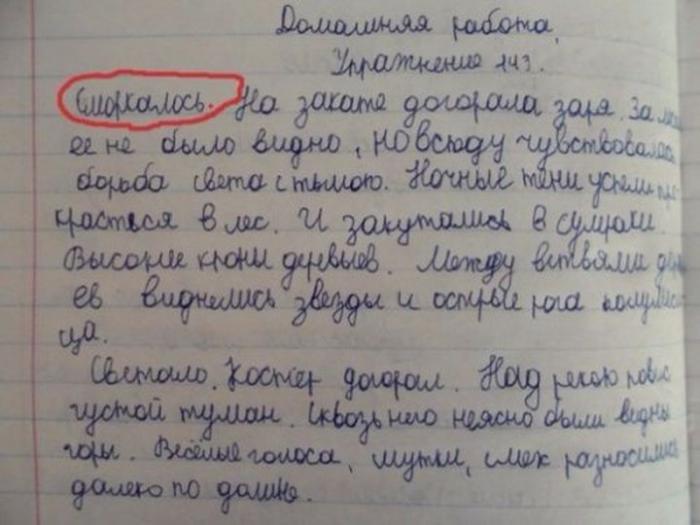 Домашняя работа.
Упражнение 143.
Сморкалось. На закате догорала заря. За
ее не было видно, но всюду чувствовалась
борьба света с тьмою. Ночные тени успели
красться в лес. И закутались в сумраки.
Высокие крони деревьев. Между ветвями
ев виднелись звезды и острые рога
ца.
Светало. Костер догорал. Над рекою повис
густой туман. Сквозь него неясно были видны
горы. Весёлые голоса, шутки, смех разносились
далеко по долине.